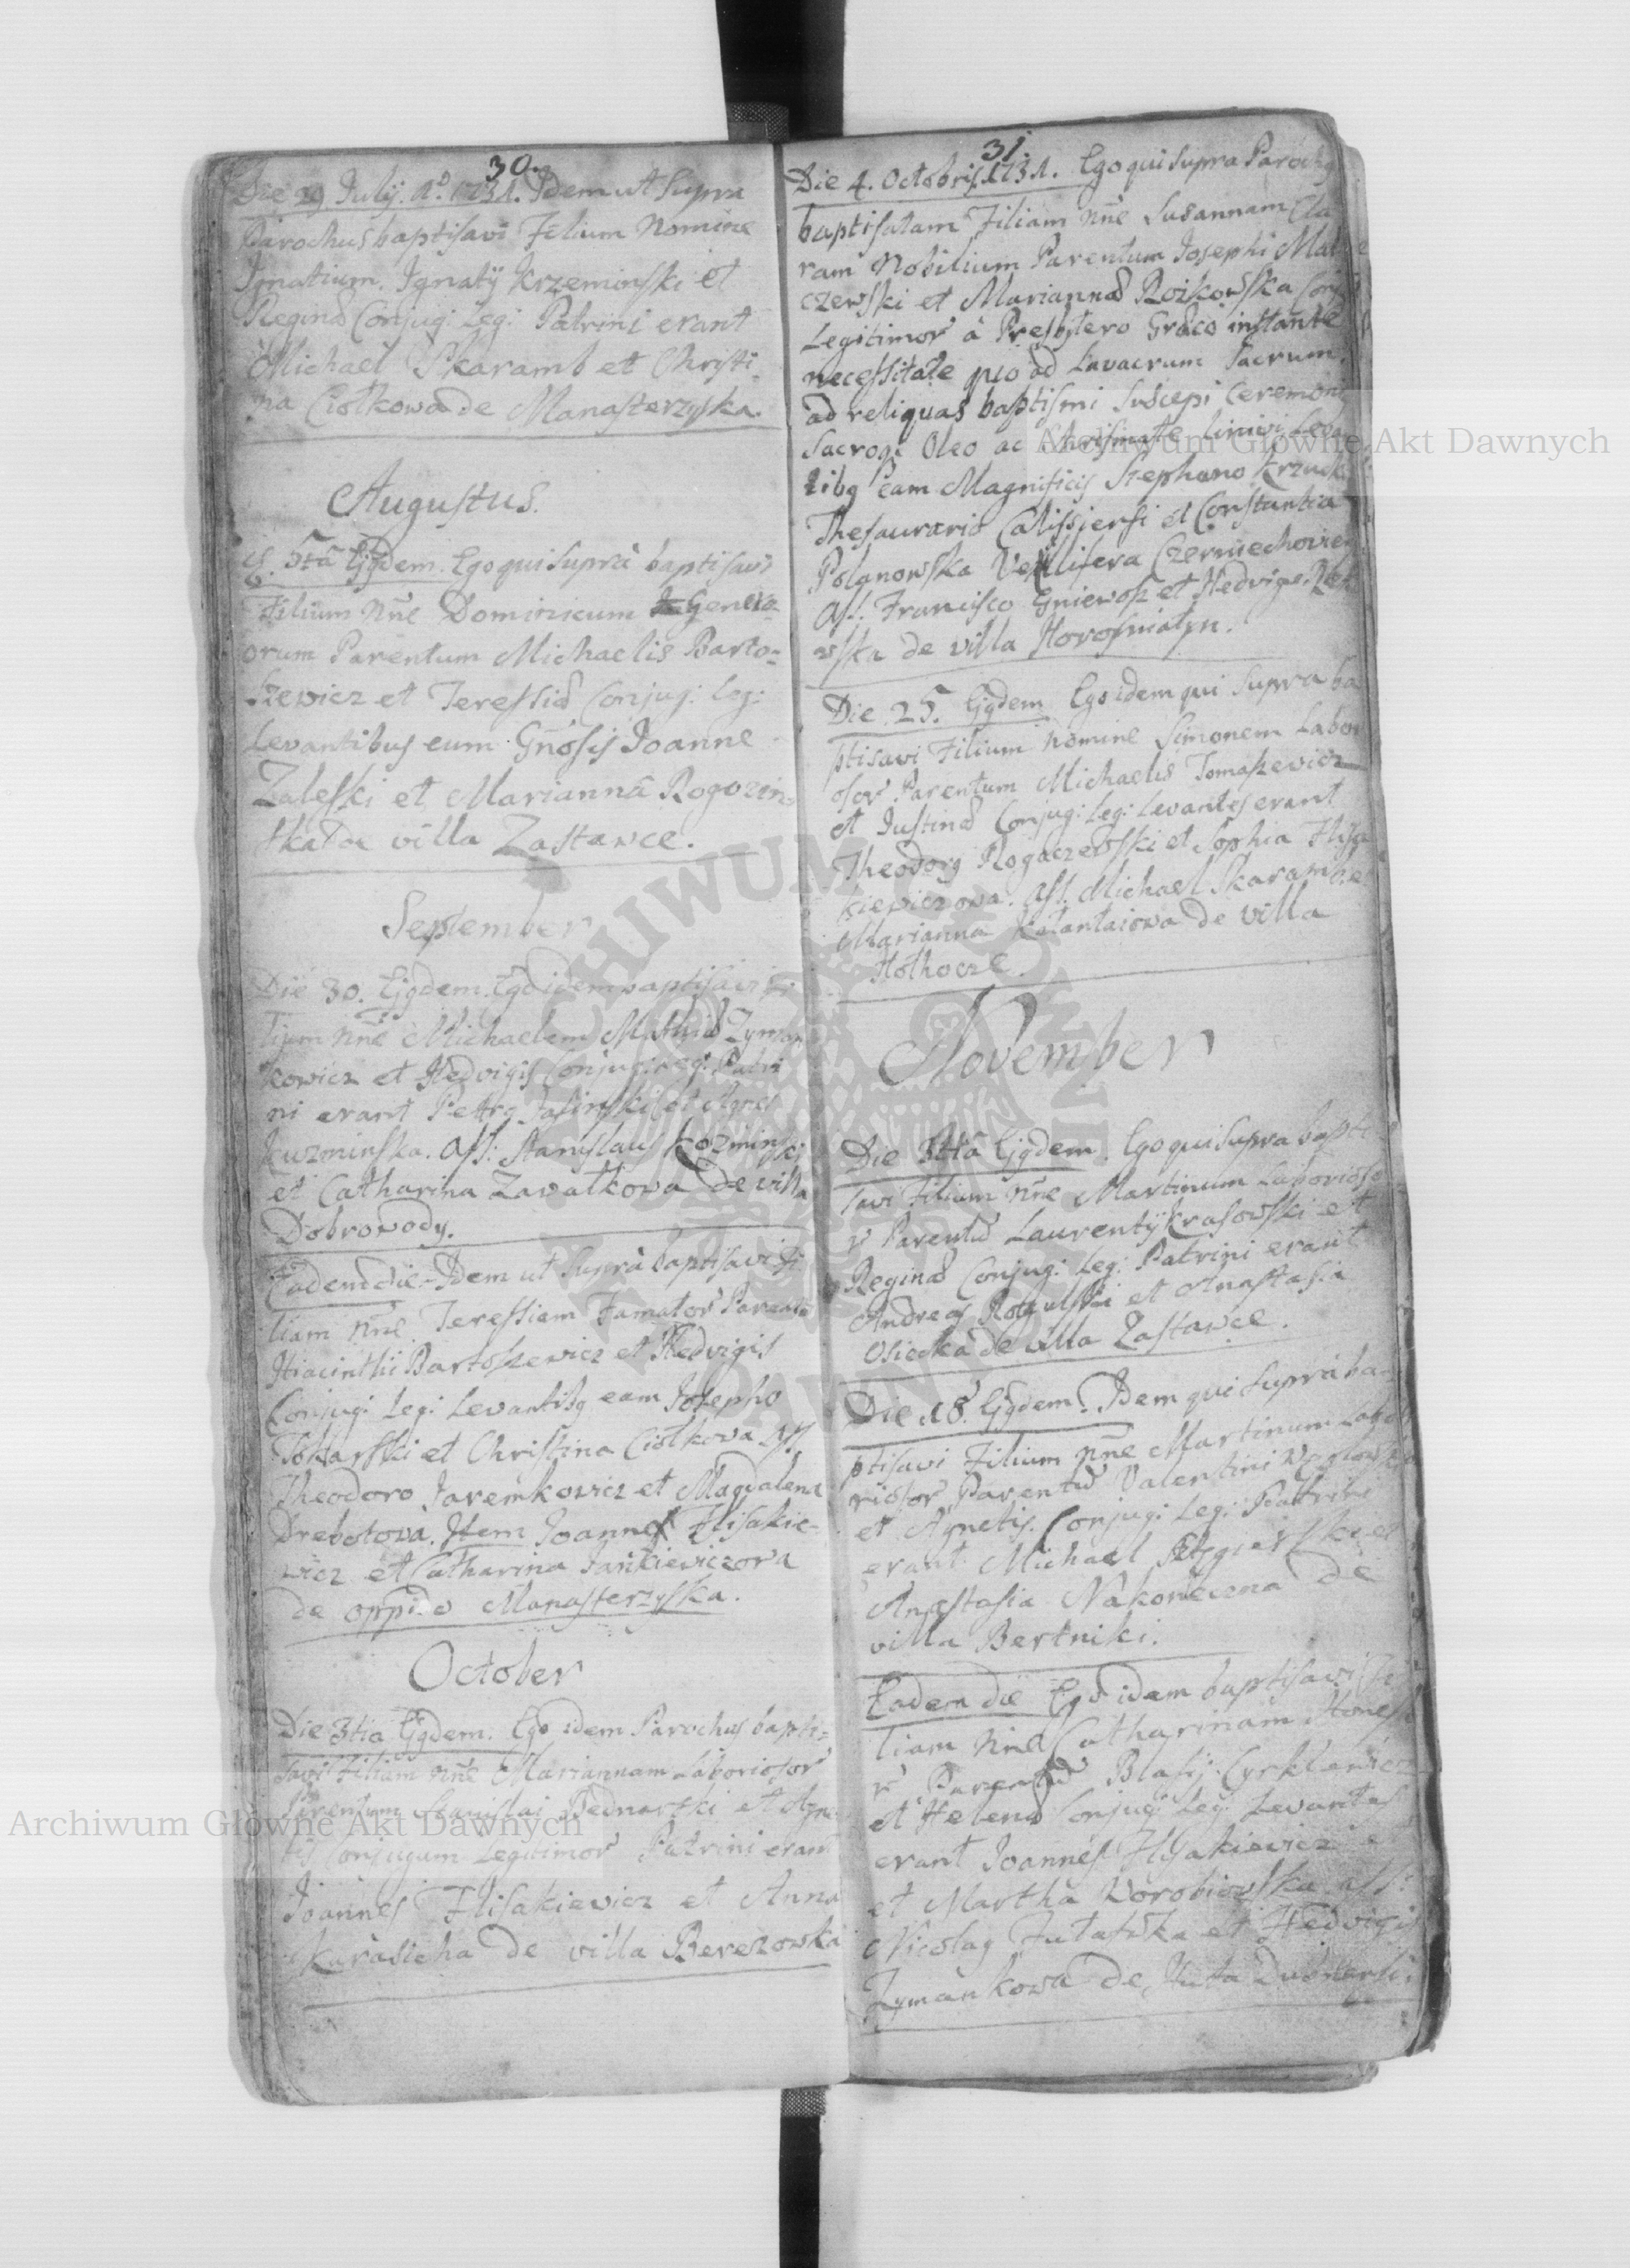 30.
Die 29 July. Ao. 1731. Idem ut Supra
Parochus baptisavi Filium Nomine
Ignatium. Ignatÿ Krzeminski et
Reginæ Conjug: Leg: Patrini erant
Michael Skaramb et Christi-
na Ciołkowa de Manasterzyska.
Augustus.
5ta Ejgdem. Ego qui supra baptisavi
Filium Nne Dominicum Genero-
orum Parentum Michaelis Barto-
szewicz et Teressiæ Conjug: Leg:
Levantibus eum Gnosis Joanne
Zaleski et Marianna Rogozin-
ska de villa Zastawce.
September
Die 30. Ejgdem. Ego idem baptisavi Fi-
lium Nne Michaelem Mathiæ Zyman
kowicz et Hedvigis Conjug: Leg: Patri
ni erant Petrg Jasinski et Agnes
Kuzminska. Ass: Stanislaus Kozminski
et Catharina Zawałkowa de villa
Dobrowody.
Eadem die Idem ut Supra baptisavi Fi
liam Nne Teressiam Famator Parentu
Hiacinthi Bartoszewicz et Hedvigis
Conjug: Leg: Levantibg eam Josepho
Tokarski et Christina Ciołkowa Ass
Theodoro Jaremkowicz et Magdalena
Drebotowa. Item Joannes Flisakie-
wicz et Catharina Jankiewiczowa
de oppido Manasterzyska.
October
Die 3tia Ejgdem. Ego idem Parochus bapti-
savi Filiam Nne Mariannam Laboriosor
Parentum Stanislai Bednarski et Agne-
tis Conjugum Legitimor Patrini erant
Joannes Flisakiewicz et Anna
Karasicha de villa Berezowka
31.
Die 4. Octobris 1731. Ego qui supra Parochg
baptisatam Filiam Nne Susannam Cla
ram Nobilium Parentum Josephi Mal
czewski et Mariannæ Roikowska Conj
Legitimor à Presbytero Græco instante
necessitate quo ad Lavacrum Sacrum,
ad reliquas baptismi suscepi Ceremoni
Sacroq Oleo ac Chrismate linivi Levan
tibg eam Magnificis Stephano Krzucki
Thesaurario Calissiensi et Constantia
Polanowska Vexillifera Czerniechovien
Ass. Francisco Gniewosz et Hedvige
wska de villa Horosniatyn.
Die 25. Ejgdem Ego idem qui supra ba
ptisavi Filium nomine Simonem Labori
osor Parentum Michaelis Tomaszewicz
et Justinæ Conjug: Leg: Levantes erant
Theodorg Rogaczewski et Sophia Flisa
kiewiczowa. Ass. Michael Skaramb et
Marianna Kałantaiowa de villa
Hołhocze.
November
Die 3tia Ejgdem. Ego qui supra bapti
savi Filium Nne Martinum Laborioso
r Parentu Laurentÿ Krasowski et
Reginæ Conjug: Leg: Patrini erant
Andreas Rogulski et Anastasia
Osiecka de villa Zastawce.
Die 18. Ejgdem. Idem qui supra ba-
ptisavi Filium Nne Martinum Labo
riosor Parentu Valentini
et Agnetis Conjug: Leg: Patrini
erant Michael et
Anastasia Nakonieczna de
villa Bertniki.
Eadem die Ego idem baptisavi Fi
liam Nne Catharinam Honesto
r Parentu Blasÿ Cyrklewicz
et Helenæ Conjug: Leg: Levantes
erant Joannes Flisakiewicz
et Martha Worobiowska ass:
Nicolag et Hedvigis
Zymankowa de Huta
Archiwum Główne Akt Dawnych
Archiwum Główne Akt Dawnych
ARCHIWUM GŁÓWNE AKT DAWNYCH